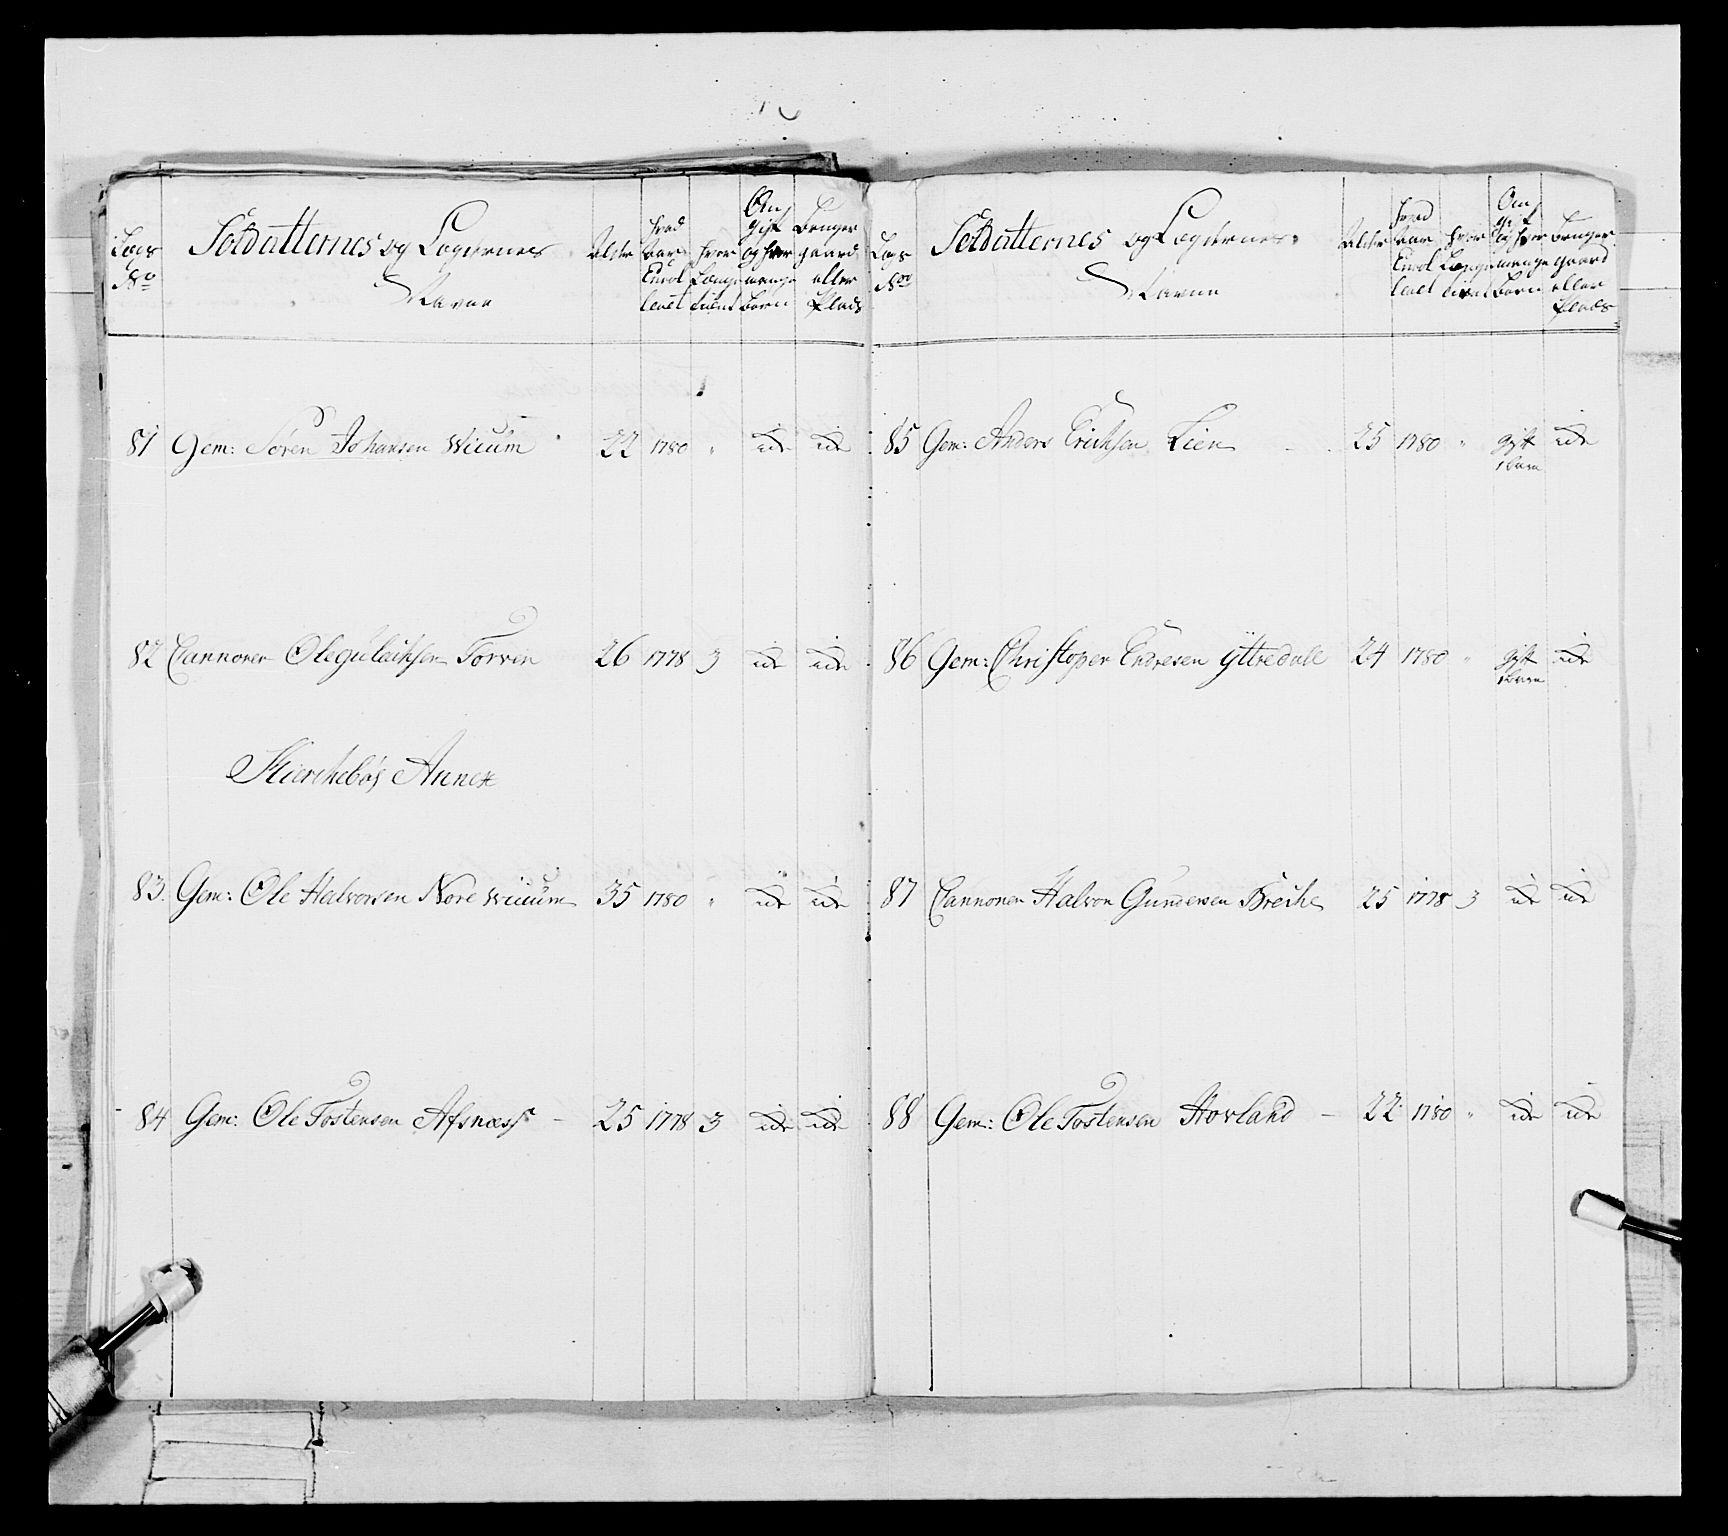 Lægs No
Soldatternes og Lægdernes Navne
Alder
hvad Aar Enrolleret
hvor Længe tient
Om gift og hvor mange Børn
Bruger gaard eller Plads
81 Gem: Sören Johansen Wiium 22 1780 " ide ide
82 Cannoner Ole guleichsen Torvin 26 1778 3 ide ide
Kierchebös Annex
83. Gem: Ole Halvorsen Nore Wiium 35 1780 " ide ide
84 Gem: Ole Tostensen Afsnæss - 25 1778 3 ide ide
Lægs No
Soldatternes og Lægdernes Navne
Alder
hvad Aar Enrolleret
hvor Længe tient
Om gift og hvor mange Børn
Bruger gaard eller Plads
85 Gem: Anders Erichsen Lien 25 1780 " gift 1 barn ide
86 Gem: Christopher Endresen Yttredall 24 1780 " gift 1 barn ide
87 Cannoner Halvor Gundersen Breche 25 1778 3 ide ide
88 Gem: Ole Tostensen Hovland - 22 1780 " ide ide